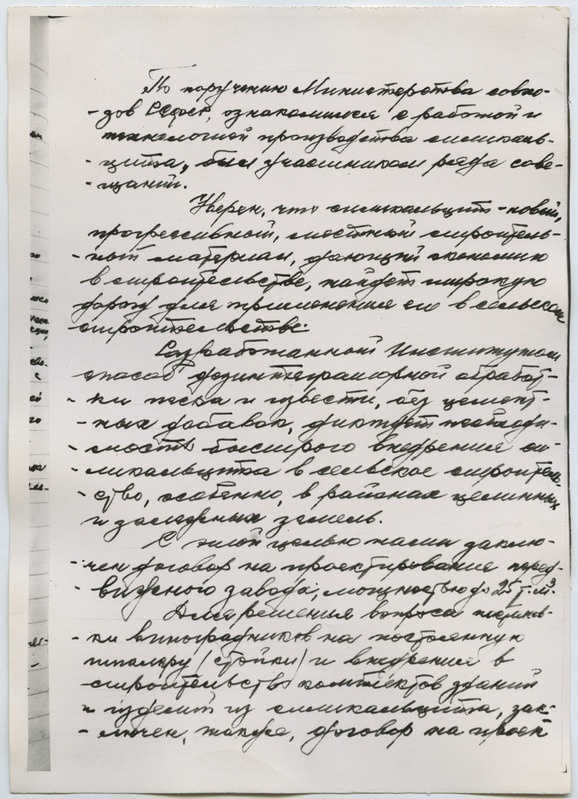 По поручению Министерства совхо-
- зов СССР, ознакомился с работой и
технологией производства силикаль-
- цита, был участником ряда сове-
- щаний.
Уверен, что силикальцит - новый,
прогрессивный, местный строитель-
- ный материал, дающий экономию
в строительстве, найдет широкую
дорогу для применения его в сельском
строительстве.
Разработанный Институтом
способ дезинтеграторной обработ-
- ки песка и извести, без цемент-
- ных добавок, диктует необходи-
- мость быстрого внедрения си-
- ликальцита в сельское строитель-
- ство, особенно, в районах целинных
и залежных земель.
С этой целью нами заклю-
- чен договор на проектирование перед-
- вижного завода, мощностью до 25 т. м³.
Для решения вопроса
- ки виноградников на постоянную
шпалеру (стойки) и внедрения в
строительство комплектов зданий
и изделий из силикальцита, зак-
- лючен, также, договор на проек